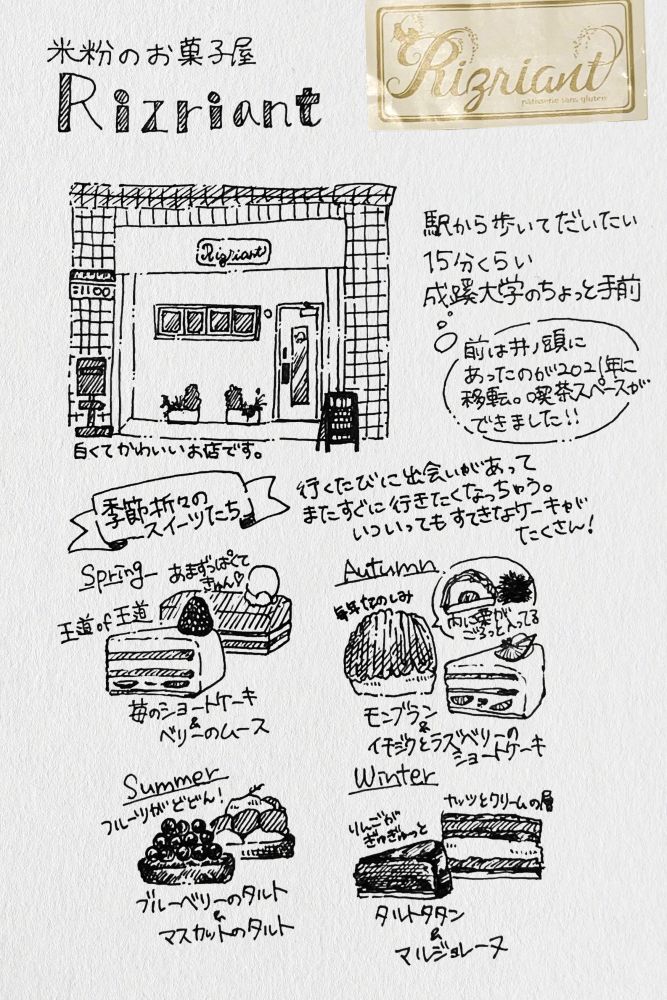 米粉のお菓子屋
Rizriant
Rizriant
pâtisserie sans gluten
Rizriant
駅から歩いてだいたい
15分くらい
成蹊大学のちょっと手前
前は井ノ頭に
あったのが2021年に
移転。喫茶スペースが
できました!!
白くてかわいいお店です。
季節折々の
スイーツたち
行くたびに出会いがあって
またすぐに行きたくなっちゃう。
いついってもすてきなケーキが
たくさん!
Spring
あまずっぱくて
きゅん♡
王道of王道
苺のショートケーキ
&
ベリーのムース
Autumn
毎年たのしみ
内に栗が
ごろっと入ってる
モンブラン
&
イチジクとラズベリーの
ショートケーキ
Summer
フルーツがどどん!
ブルーベリーのタルト
&
マスカットのタルト
Winter
りんごが
ぎゅぎゅっと
ナッツとクリームの層
タルトタタン
&
マルジョレーヌ